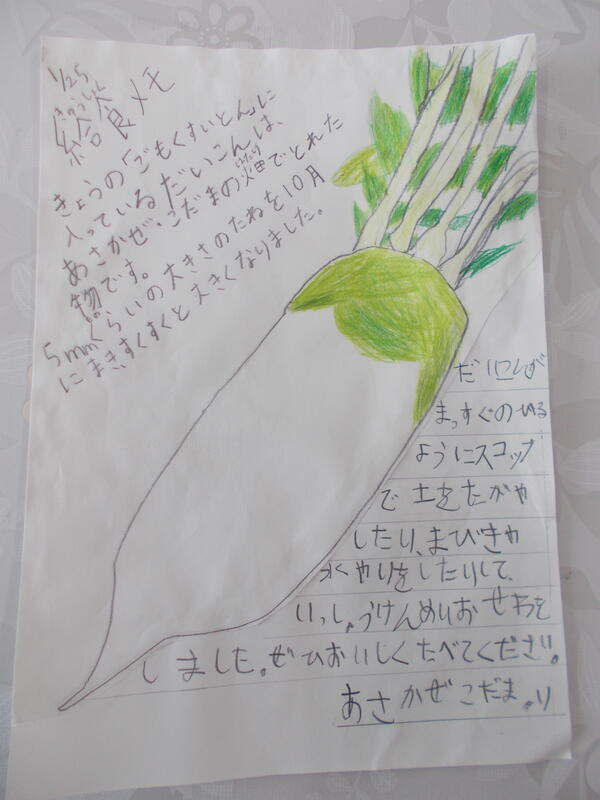 1/25
きゅうしょく
給食メモ
きょうの「ごもくすいとん」に
入っているだいこんは、
あさかぜ・こだまの畑でとれた
はたけ
物です。
5mmぐらいの大きさのたねを10月
にまき、すくすくと大きくなりました。
だいこんが
まっすぐのびる
ようにスコップ
で土をたがや
したり、まびきや
水やりをしたりして、
いっしょうけんめいおせわを
しました。ぜひおいしくたべてください。
あさかぜこだまより